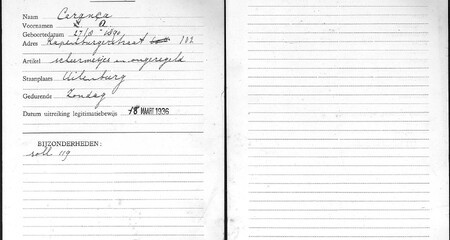 Naam Ceranca
Voornamen
Geboortedatum 27/8 1890
Adres Rapenburgerstraat 102
Artikel schermetjes en ongeregeld
Staanplaats Uilenburg
Gedurende Zondag
Datum uitreiking legitimatiebewijs 18 MAART 1936
BIJZONDERHEDEN:
119